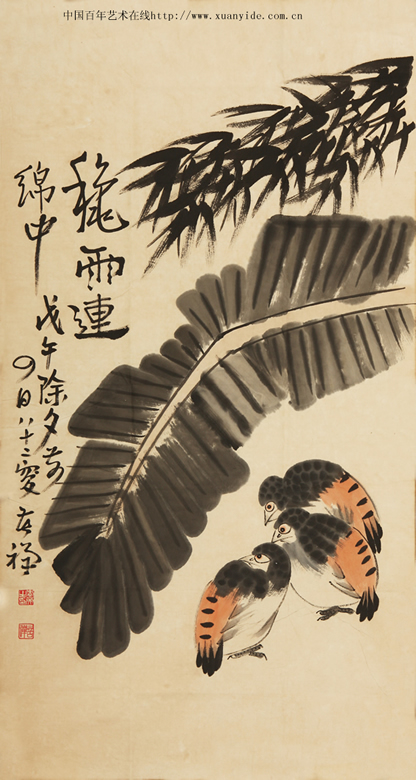 中国百年艺术在线http://www.xuanyide.com.cn
穐雨連
綿中
戊午除夕前
四日八十二叟苦禅